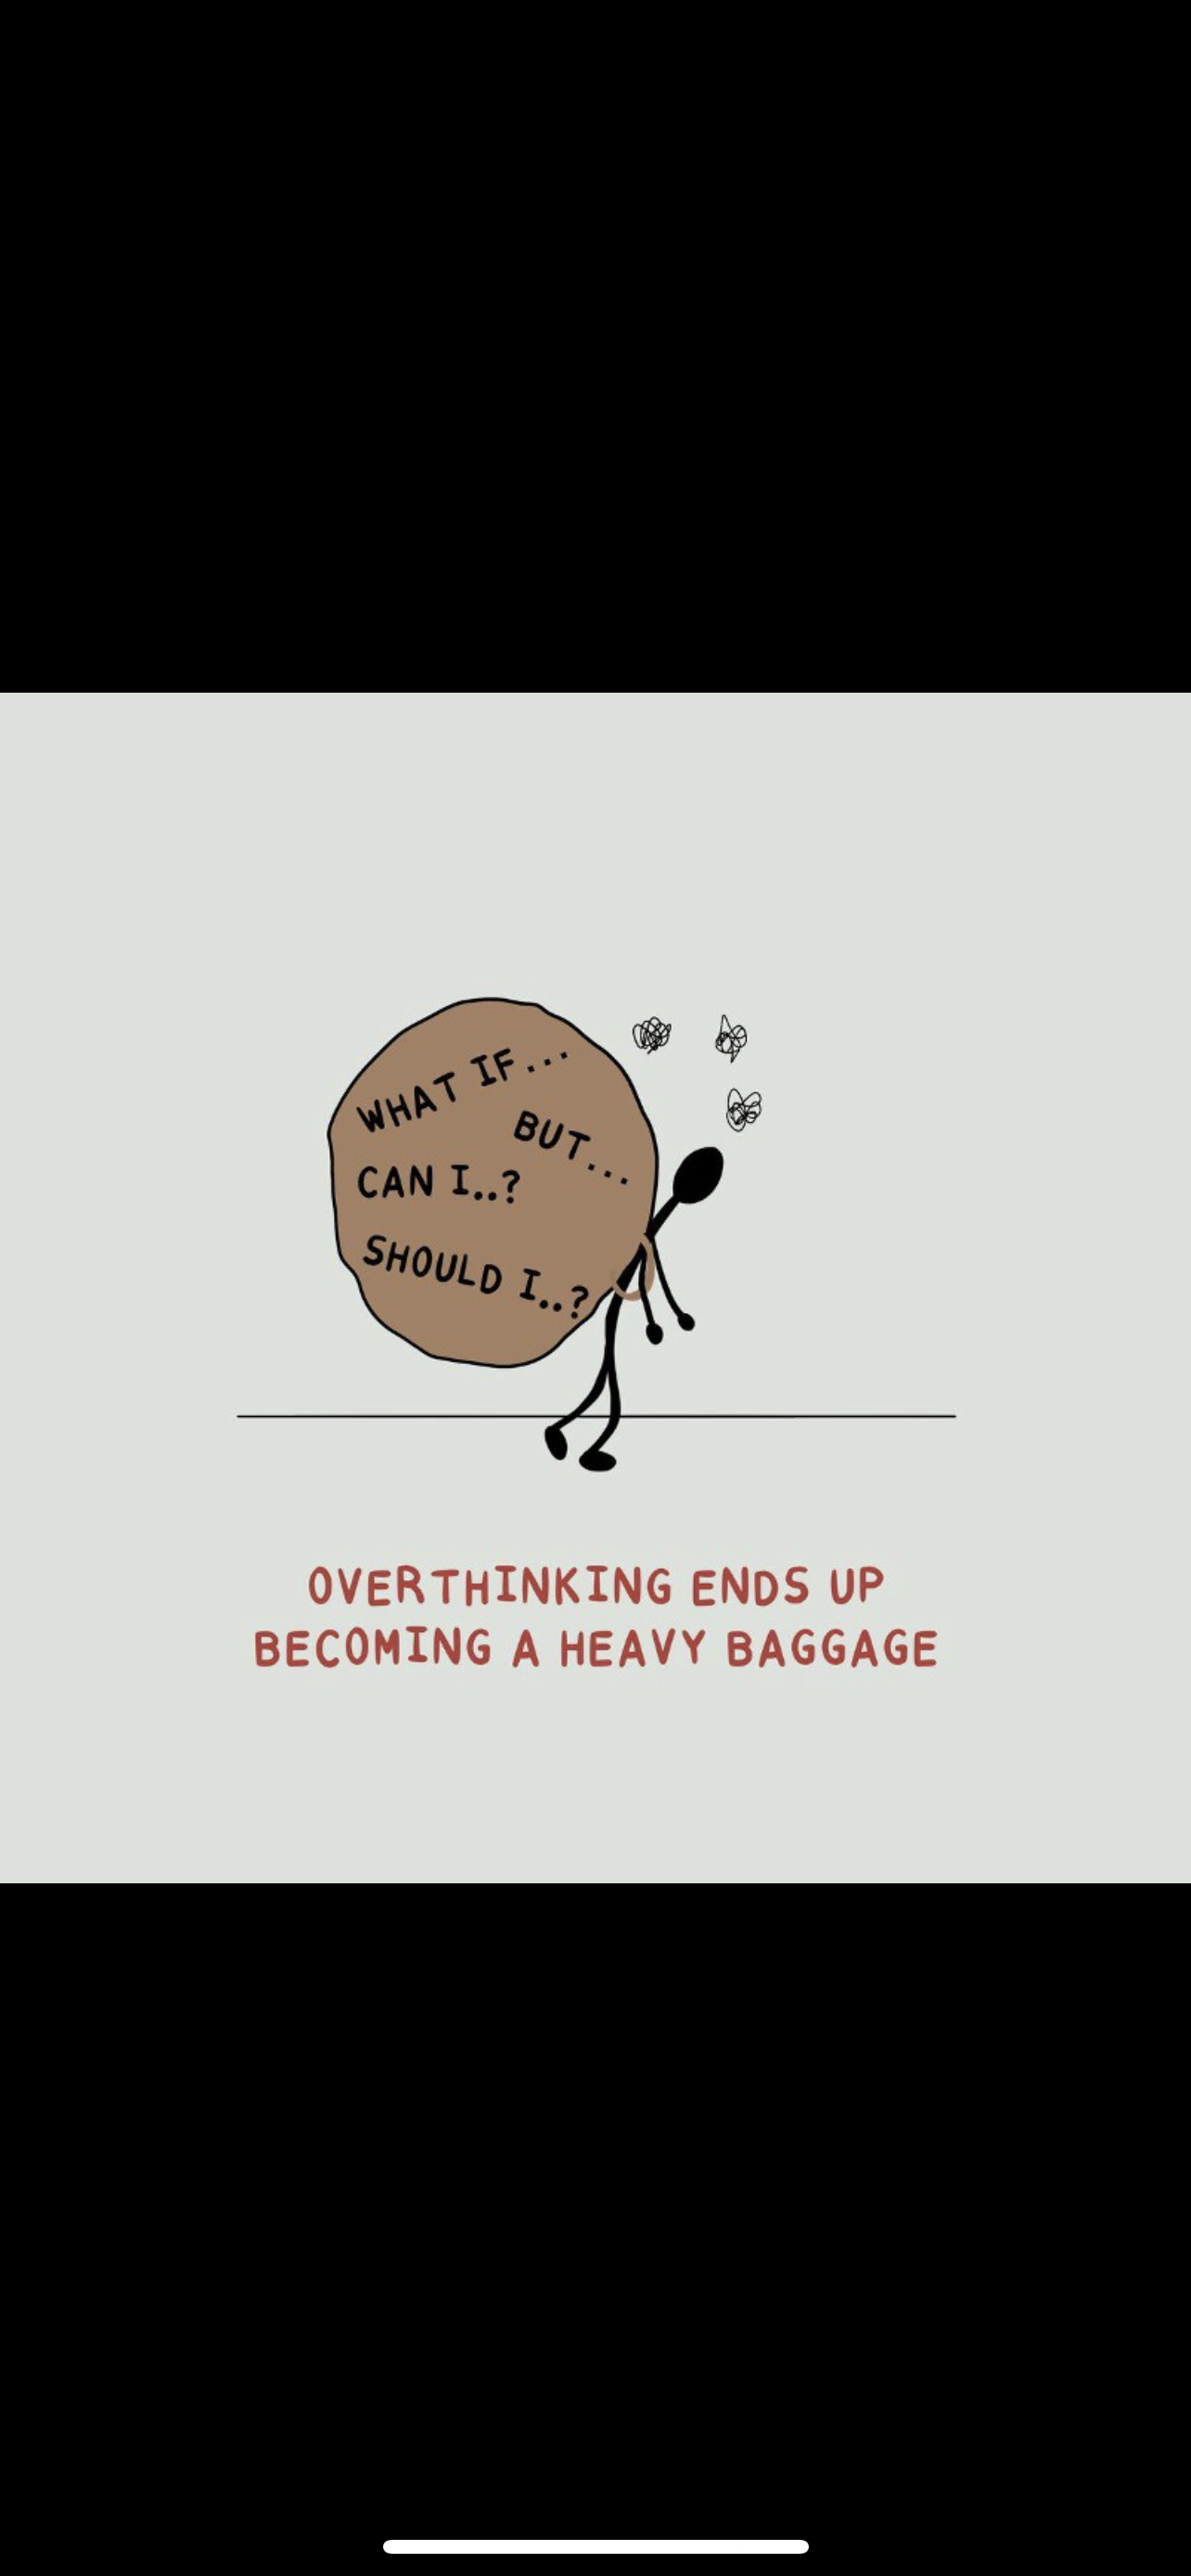 WHAT IF...
BUT...
CAN I..?
SHOULD I..?
OVERTHINKING ENDS UP
BECOMING A HEAVY BAGGAGE